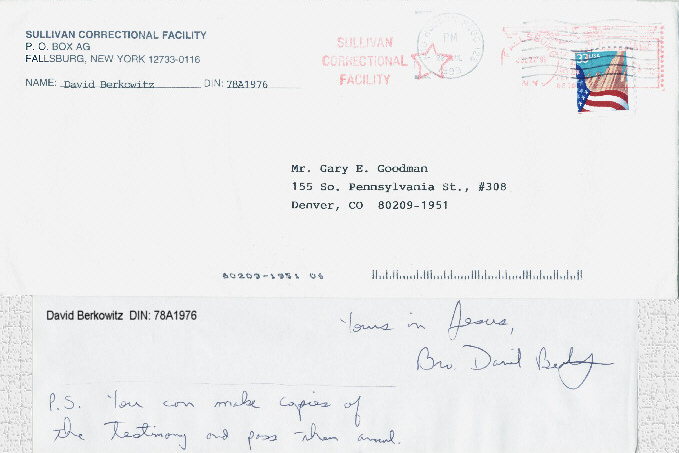 SULLIVAN CORRECTIONAL FACILITY
P. O. BOX AG
FALLSBURG, NEW YORK 12733-0116
NAME: David Berkowitz DIN: 78A1976
SULLIVAN
CORRECTIONAL
FACILITY
PM
33 USA
Mr. Gary E. Goodman
155 So. Pennsylvania St., #308
Denver, CO 80209-1951
80209-1951 06
David Berkowitz DIN: 78A1976
Yours in Jesus,
Bro. David
P.S. You can make copies of
the testimony and pass them around.